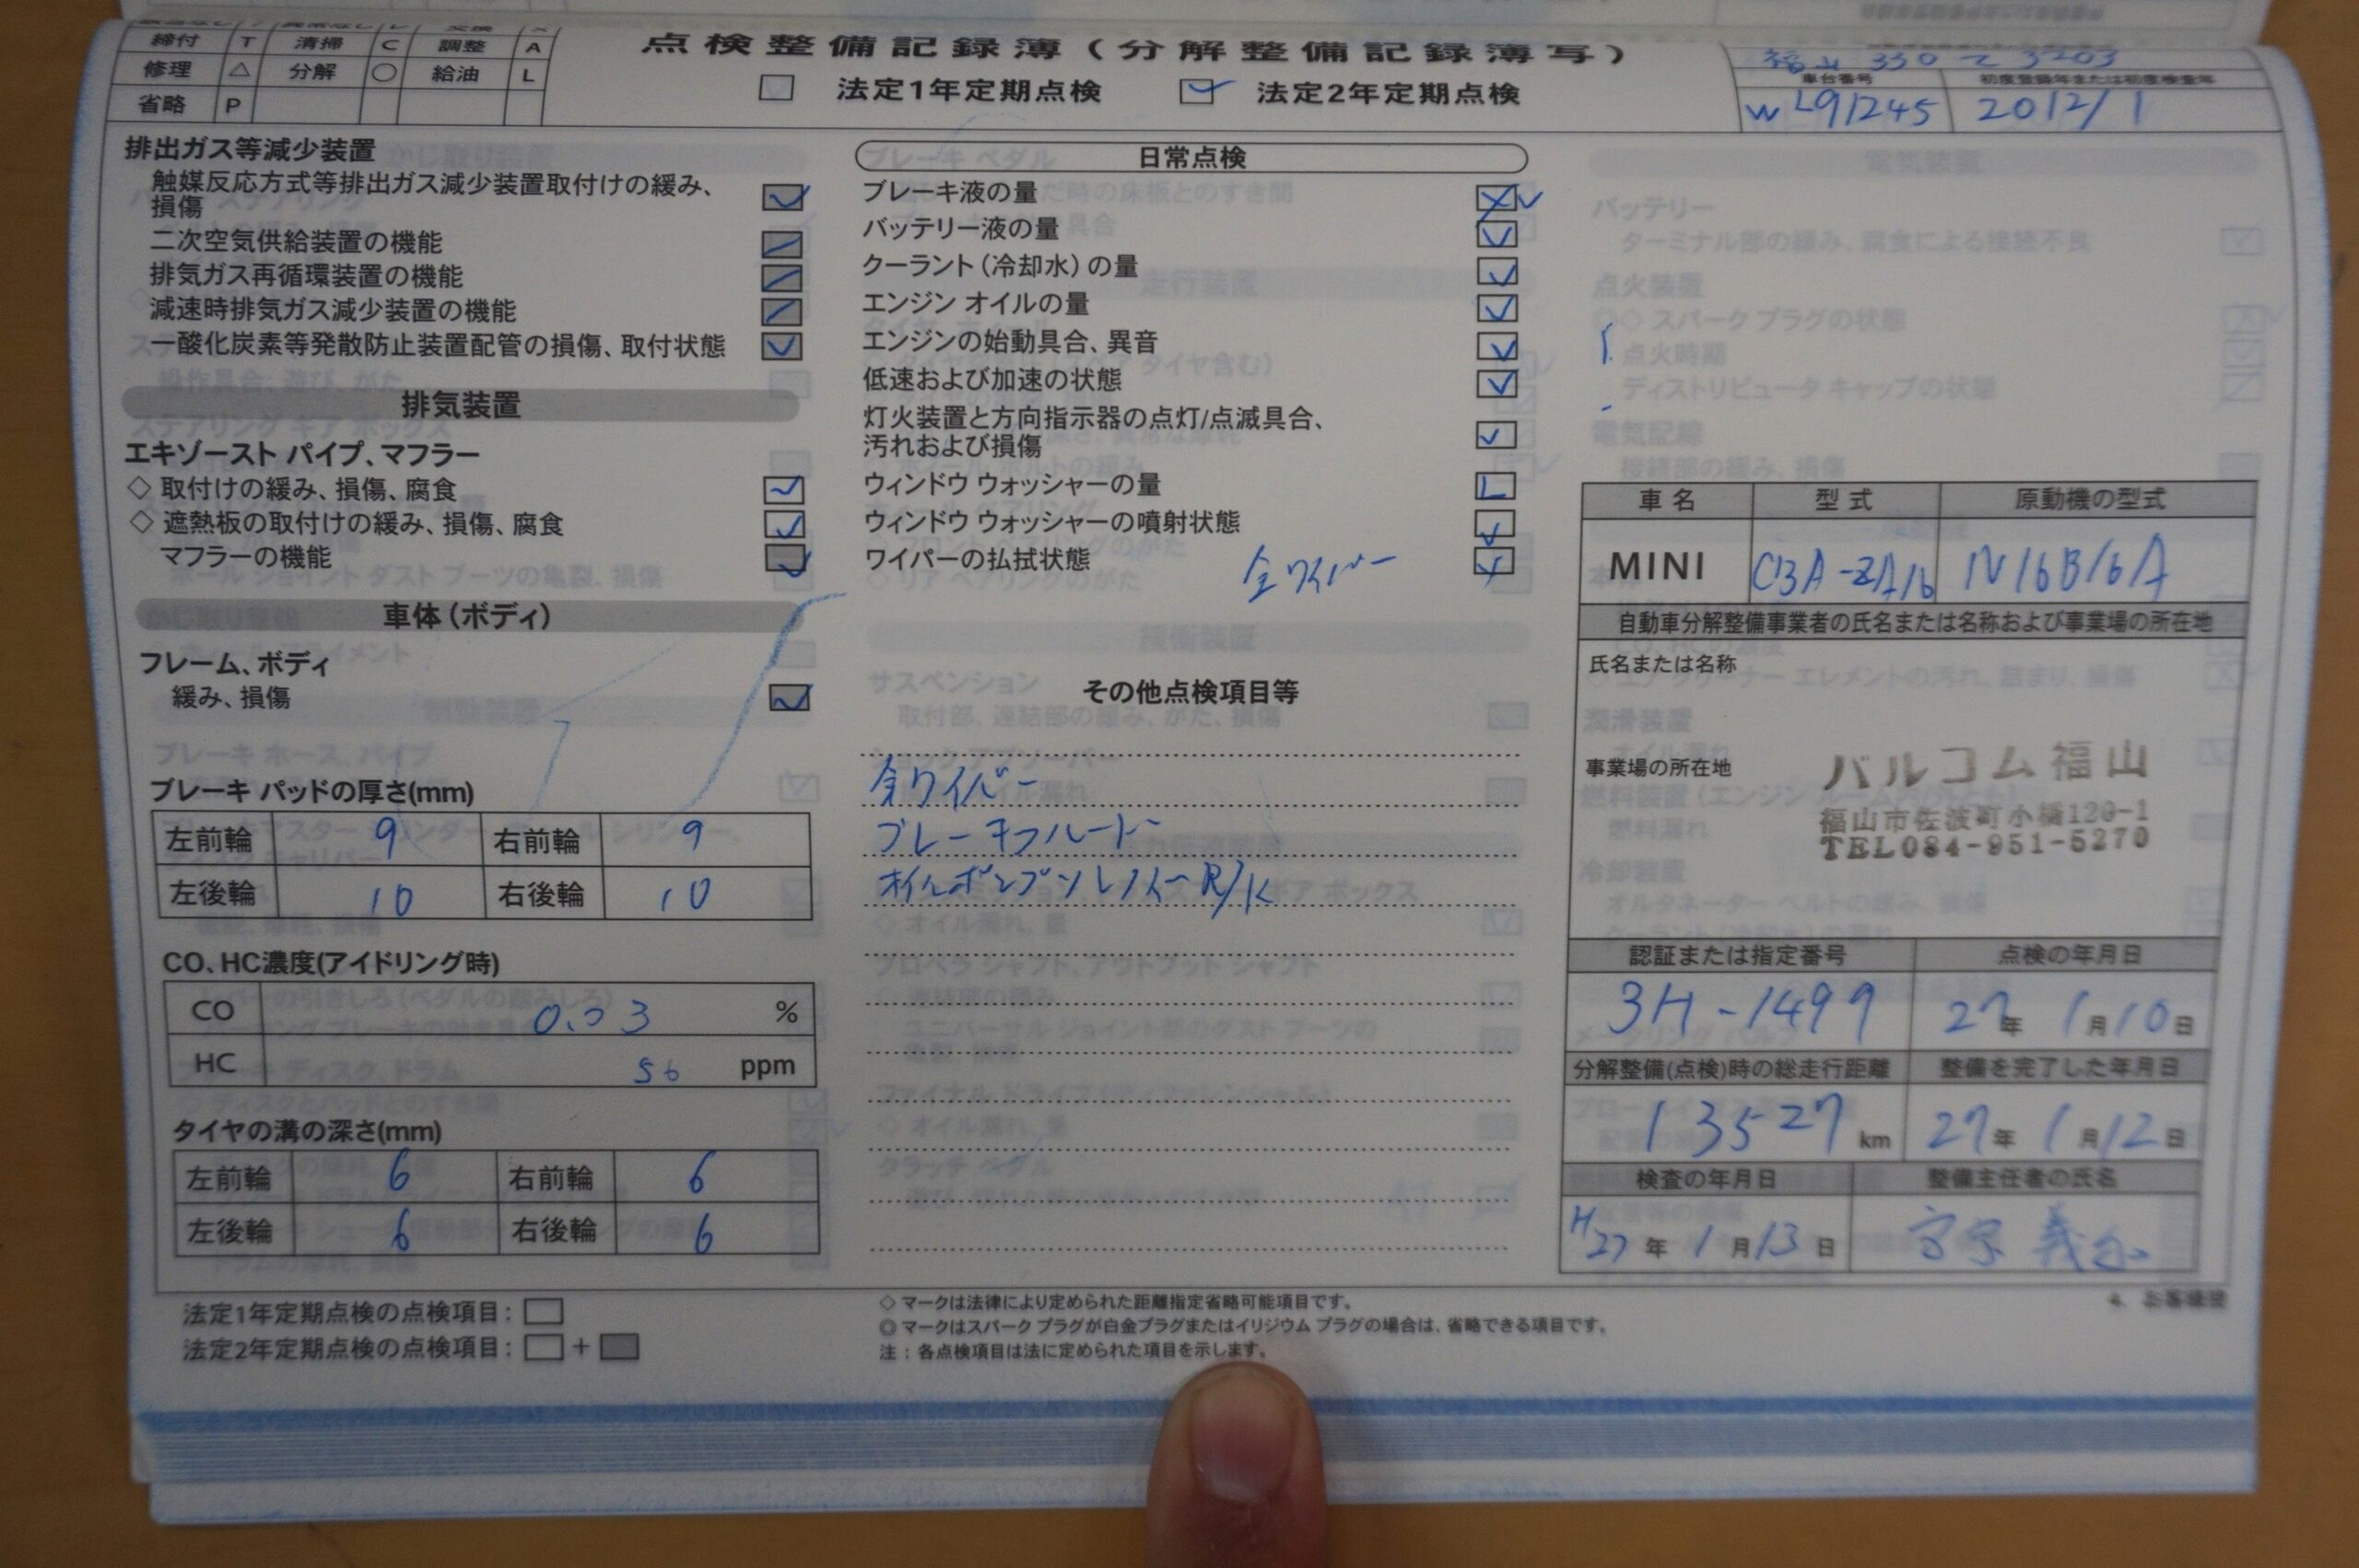 締付 T 清掃 C 調整 A
修理 △ 分解 ○ 給油 L
省略 P
点検整備記録簿（分解整備記録簿写）
法定1年定期点検 法定2年定期点検
福山 330 て 3203
車台番号 初度登録年または初度検査年
WL91245 2012/1
排出ガス等減少装置
触媒反応方式等排出ガス減少装置取付けの緩み、
損傷
二次空気供給装置の機能
排気ガス再循環装置の機能
減速時排気ガス減少装置の機能
一酸化炭素等発散防止装置配管の損傷、取付状態
排気装置
エキゾースト パイプ、マフラー
◇ 取付けの緩み、損傷、腐食
◇ 遮熱板の取付けの緩み、損傷、腐食
マフラーの機能
車体（ボディ）
フレーム、ボディ
緩み、損傷
ブレーキ パッドの厚さ(mm)
左前輪 9 右前輪 9
左後輪 10 右後輪 10
CO、HC濃度(アイドリング時)
CO 0.03 %
HC 56 ppm
タイヤの溝の深さ(mm)
左前輪 6 右前輪 6
左後輪 6 右後輪 6
日常点検
ブレーキ液の量
バッテリー液の量
クーラント（冷却水）の量
エンジン オイルの量
エンジンの始動具合、異音
低速および加速の状態
灯火装置と方向指示器の点灯/点滅具合、
汚れおよび損傷
ウィンドウ ウォッシャーの量 L
ウィンドウ ウォッシャーの噴射状態
ワイパーの払拭状態 全ワイパー
その他点検項目等
全ワイパー
ブレーキフルード
オイルポンプソレノイド R/K
車名 型式 原動機の型式
MINI CBA-ZA16 N16B16A
自動車分解整備事業者の氏名または名称および事業場の所在地
氏名または名称
事業場の所在地
バルコム福山
福山市佐波町小橋120-1
TEL084-951-5270
認証または指定番号 点検の年月日
3H-1499 27年 1月10日
分解整備(点検)時の総走行距離 整備を完了した年月日
13527 km 27年 1月12日
検査の年月日 整備主任者の氏名
H27年 1月13日
4. お客様控
法定1年定期点検の点検項目：
法定2年定期点検の点検項目： +
◇ マークは法律により定められた距離指定省略可能項目です。
◎ マークはスパーク プラグが白金プラグまたはイリジウム プラグの場合は、省略できる項目です。
注：各点検項目は法に定められた項目を示します。